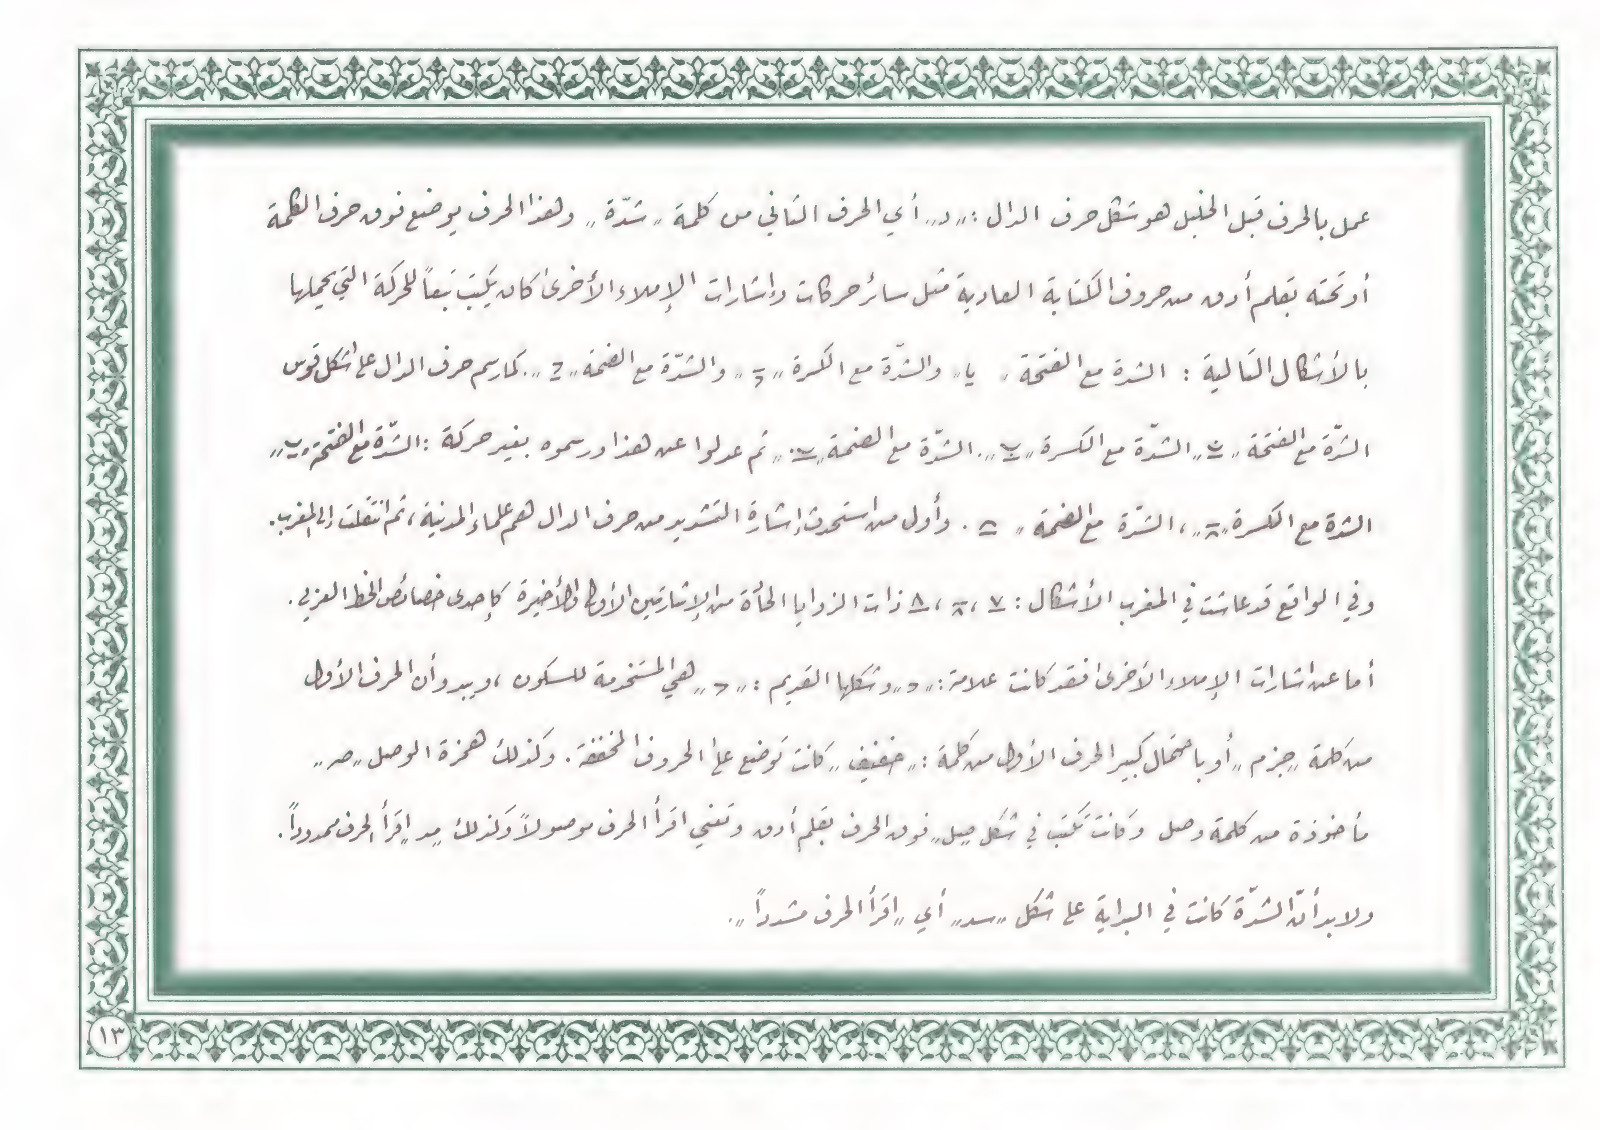 عمل بالحرف قبل الخليل هو شكل حرف الدال : „ د „ أي الحرف الثاني من كلمة „ شدّة „ وهذا الحرف يوضع فوق حرف الكلمة
أو تحته بقلم أدق من حروف الكتابة العادية مثل سائر حركات وإشارات الإملاء الأخرى كان يكتب تبعاً للحركة التي يحملها
بالأشكال التالية : الشدة مع الفتحة „ „ والشدّة مع الكسرة „ „ والشدّة مع الضمة „ „ . كما رسم حرف الدال على شكل قوس
الشدّة مع الفتحة „ „ الشدّة مع الكسرة „ „ . الشدّة مع الضمة „ „ ثم عدلوا عن هذا ورسموه بغير حركة : الشدّة مع الفتحة „ „
الشدة مع الكسرة „ „ ، الشدّة مع الضمة „ . وأول من استحدث إشارة التشديد من حرف الدال هم علماء المدينة ، ثم انتقلت إلى المغرب .
وفي الواقع قد عاشت في المغرب الأشكال : ٧ ، ٨ ، ٨ ذات الزوايا الحادّة من الإشارتين الأولى والأخيرة كإحدى خصائص الخط العربي .
أما عن اشارات الإملاء الأخرى فقد كانت علامة : „ „ وشكلها القديم : „ „ هي المستخدمة للسكون ، ويبدو أن الحرف الأول
من كلمة „ جزم „ أو باحتمال كبير الحرف الأول من كلمة : „ خفيف „ كانت توضع على الحروف المخففة . وكذلك همزة الوصل „ صـ „
مأخوذة من كلمة وصل وكانت تكتب في شكل صِل „ فوق الحرف بقلم أدق وتعني اقرأ الحرف موصولاً وكذلك مد إقرأ الحرف ممدوداً .
ولابد أنّ الشدّة كانت في البداية على شكل „ سد „ أي „ اقرأ الحرف مشدداً „ .
١٣